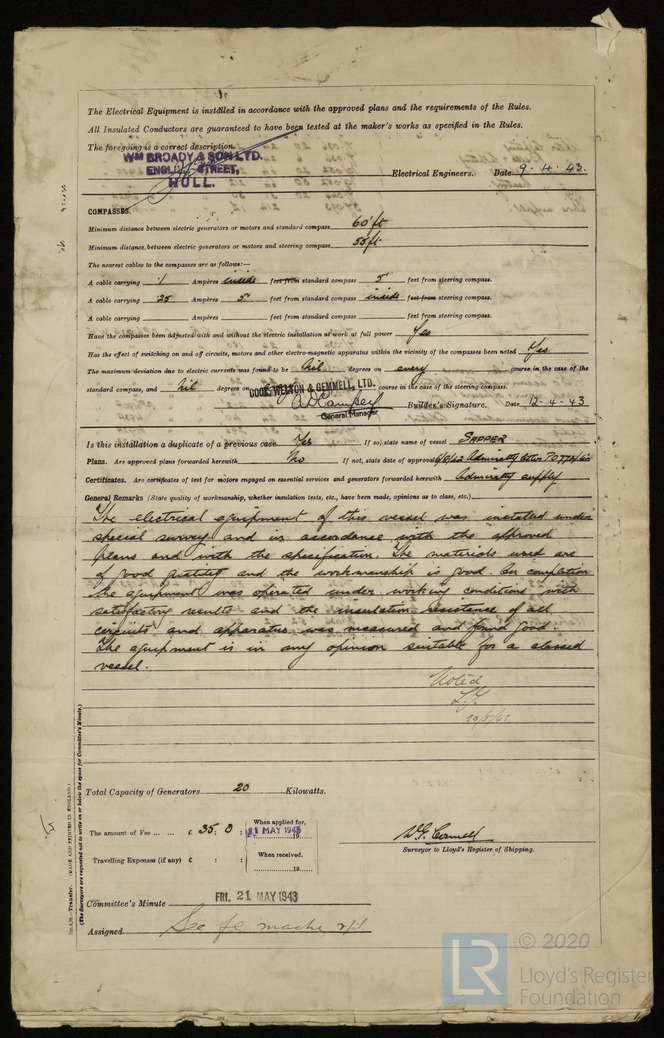 The Electrical Equipment is installed in accordance with the approved plans and the requirements of the Rules.
All Insulated Conductors are guaranteed to have been tested at the maker's works as specified in the Rules.
The foregoing is a correct description.
WM BROADY & SON LTD.
ENGLISH STREET,
HULL.
Electrical Engineers. Date 9.4.43.
COMPASSES.
Minimum distance between electric generators or motors and standard compass 60 ft
Minimum distance between electric generators or motors and steering compass 55 ft.
The nearest cables to the compasses are as follows:—
A cable carrying .1 Ampères inside feet from standard compass 5' feet from steering compass.
A cable carrying .25 Ampères 5' feet from standard compass inside feet from steering compass.
A cable carrying Ampères feet from standard compass feet from steering compass.
Have the compasses been adjusted with and without the electric installation at work at full power Yes
Has the effect of switching on and off circuits, motors and other electro-magnetic apparatus within the vicinity of the compasses been noted Yes.
The maximum deviation due to electric currents was found to be Nil degrees on every course in the case of the
standard compass, and Nil degrees on course in the case of the steering compass.
COOK, WELTON & GEMMELL, LTD.
General Manager
Builder's Signature. Date 12-4-43
Is this installation a duplicate of a previous case Yes If so, state name of vessel SAPPER
Plans. Are approved plans forwarded herewith No If not, state date of approval Admiralty letter
Certificates. Are certificates of test for motors engaged on essential services and generators forwarded herewith Admiralty supply
General Remarks (State quality of workmanship, whether insulation tests, etc., have been made, opinions as to class, etc.)
The electrical equipment of this vessel was installed under
special survey and in accordance with the approved
plans and with the specification. The materials used are
of good quality and the workmanship is good. On completion
the equipment was operated under working conditions with
satisfactory results and the insulation resistance of all
circuits and apparatus was measured and found good.
The equipment is in my opinion suitable for a classed
vessel.
Noted
Total Capacity of Generators 20 Kilowatts.
The amount of Fee ... ... £ 35 : 0 :
When applied for,
MAY 1943 19
Travelling Expenses (if any) £ : :
When received.
19
Surveyor to Lloyd's Register of Shipping.
Committee's Minute FRI. 21 MAY 1943
Assigned See
Transfer. (MADE AND PRINTED IN ENGLAND.)
(The Surveyors are requested not to write on or below the space for Committee's Minute.)
LR © 2020
Lloyd's Register
Foundation